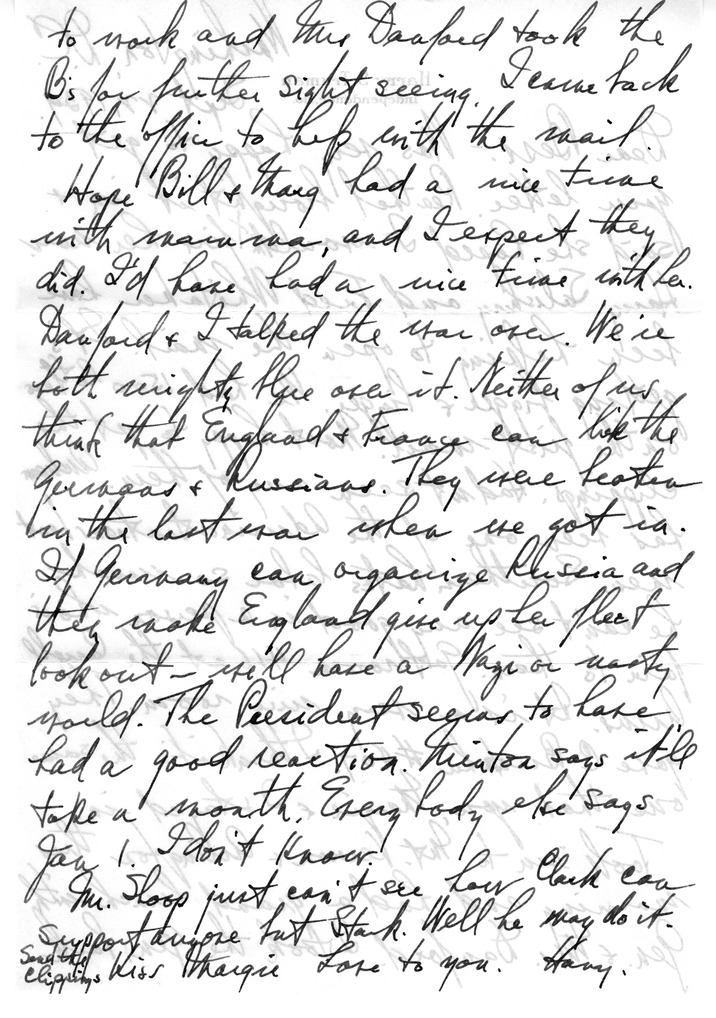 to work and Mrs Danford took the
B's for further sight seeing. I came back
to the office to help with the mail.
Hope Bill & Marg had a nice time
with mamma, and I expect they
did. I'd have had a nice time with her.
Danford & I talked the war over. We're
both mighty blue over it. Neither of us
think that England & France can lick the
Germans & Russians. They were beaten
in the last war when we got in.
If Germany can organize Russia and
they make England give up her fleet
look out – we'll have a Nazi or nasty
world. The President seems to have
had a good reaction. Minton says it'll
take a month. Every body else says
Jan 1. I don't know.
Mr. Shoop just can't see how Clark can
support anyone but Stark. Well he may do it.
Send the
Clippings
Kiss Margie Love to you. Harry.